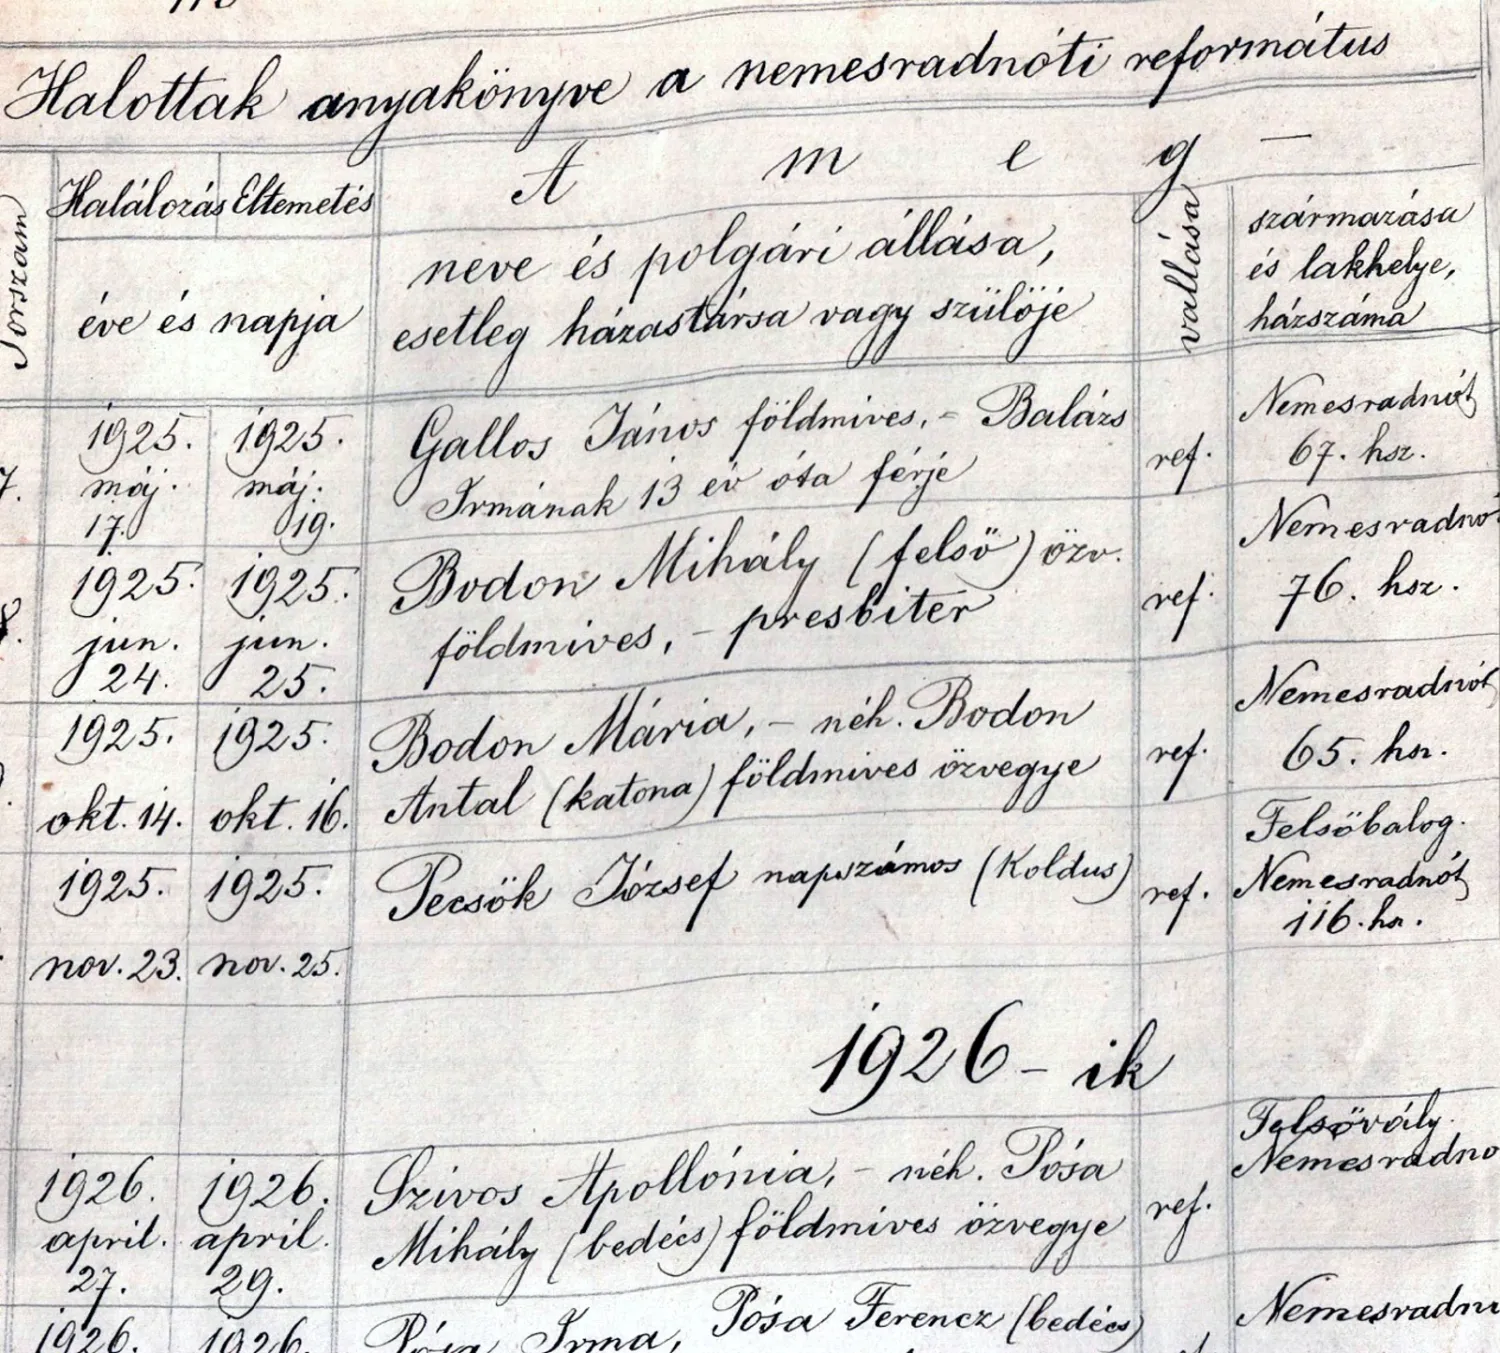 Halottak anyakönyve a nemesradnóti református
Sorszám
Halálozás Eltemetés
éve és napja
A meg-
neve és polgári állása,
esetleg házastársa vagy szülöje
vallása
származása
és lakhelye,
házszáma
7.
1925. 1925.
máj. máj.
17. 19.
Gallos János földmives, - Balázs
Irmának 13 év óta férje
ref.
Nemesradnót
67. hsz.
8.
1925. 1925.
jun. jun.
24. 25.
Bodon Mihály (felsö) özv.
földmives, - presbiter
ref.
Nemesradnó
76. hsz.
1925. 1925.
okt. 14. okt. 16.
Bodon Mária, - néh. Bodon
Antal (katona) földmives özvegye
ref.
Nemesradnót
65. hsz.
1925. 1925.
nov. 23. nov. 25.
Pecsök József napszámos (Koldus)
ref.
Felsöbalog.
Nemesradnót
116. hsz.
1926-ik
1926. 1926.
april. april.
27. 29.
Szivos Apollónia, - néh. Pósa
Mihály (bedécs) földmives özvegye
ref.
Felsövály.
Nemesradnó
1926. 1926.
Pósa Irma, Pósa Ferencz (bedécs)
Nemesradn